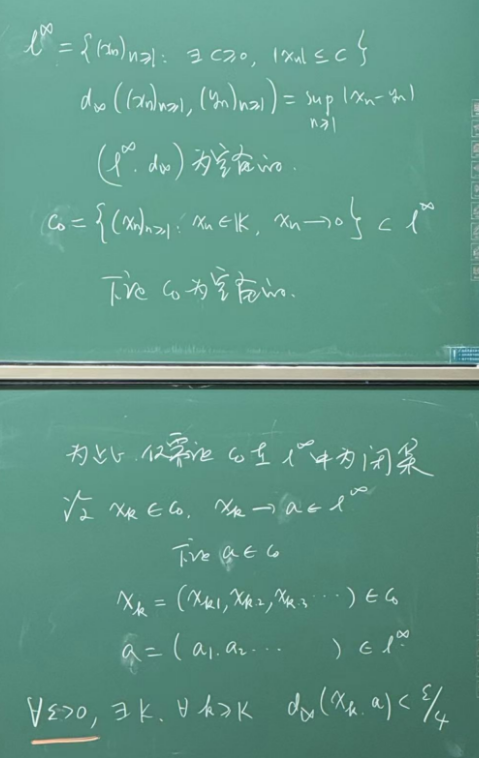 l^∞ = {(xₙ)ₙ≥₁: ∃ c≥0, |xₙ| ≤ c}
d_∞((xₙ)ₙ≥₁, (yₙ)ₙ≥₁) = sup_{n≥1} |xₙ - yₙ|
(l^∞, d_∞) 为完备
c₀ = {(xₙ)ₙ≥₁: xₙ ∈ 𝕂, xₙ → 0} ⊂ l^∞
下证 c₀ 为完备
为此 仅需证 c₀ 在 l^∞ 中为闭集
设 x_k ∈ c₀, x_k → a ∈ l^∞
下证 a ∈ c₀
x_k = (x_{k1}, x_{k2}, x_{k3} ⋯) ∈ c₀
a = (a₁, a₂ ⋯ ) ∈ l^∞
∀ε>0, ∃ K, ∀ k≥K d_∞(x_k, a) < ε/4